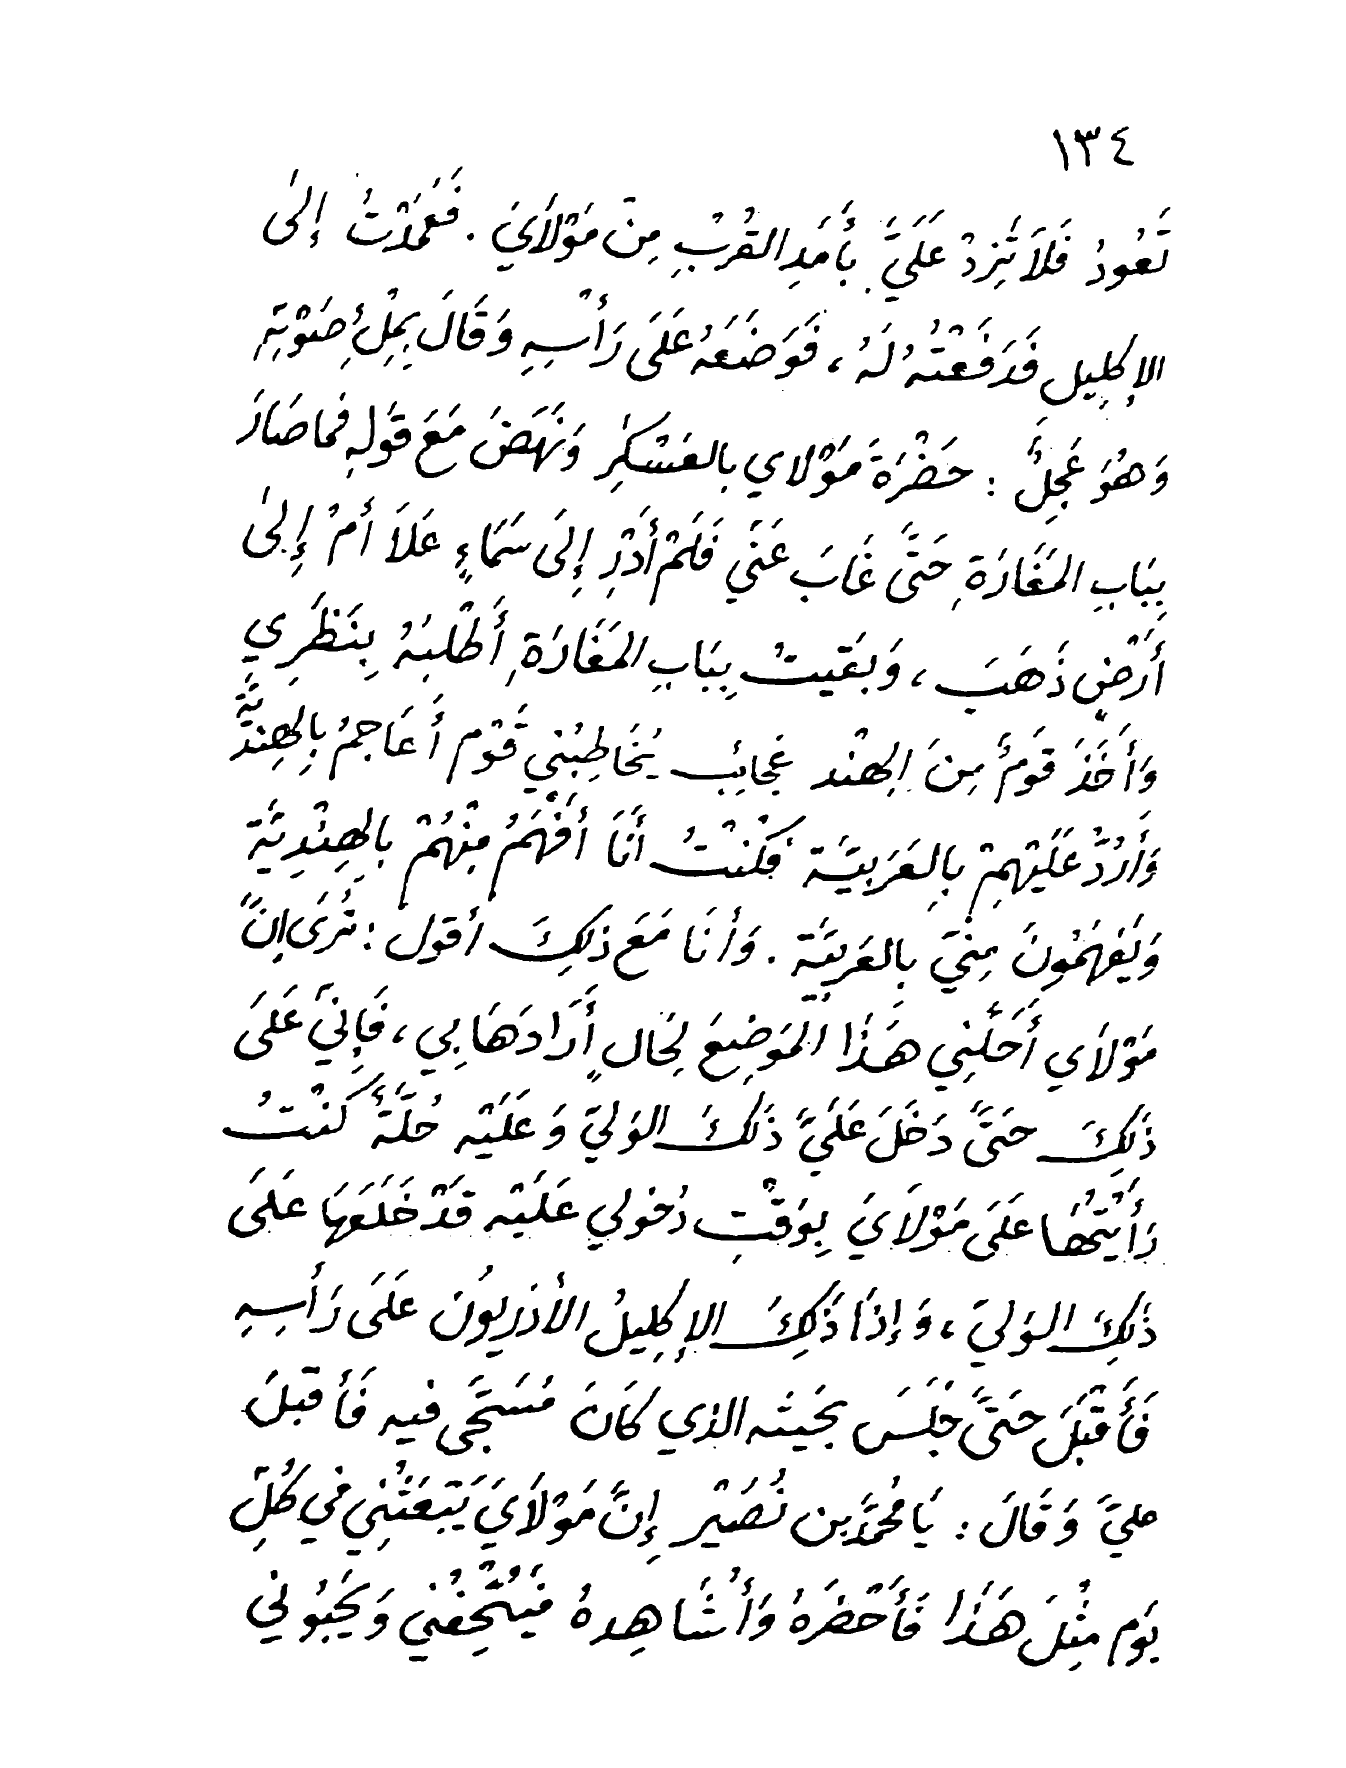 ١٣٤
تَعُودُ فَلَا تَزِدْ عَلَيَّ بِأَمَدِ القُرْبِ مِنْ مَوْلَايَ . فَعَمَدْتُ إِلىٰ
الإِكلِيلِ فَدَفَعْتُهُ لَهُ ، فَوَضَعَهُ عَلَى رَأْسِهِ وَقَالَ بِمِلْءِ صَوْتِهِ
وَهُوَ عَجِلٌ : حَضْرَةَ مَوْلاي بالعَسْكَرِ وَنَهَضَ مَعَ قَوْلِهِ فما صَارَ
بِبَابِ المَغَارَةِ حَتَّى غَابَ عَنِّي فَلَمْ أَدْرِ إِلَى سَمَاءٍ عَلَا أَمْ إِلىٰ
أَرْضٍ ذَهَبَ ، وَبَقَيتُ بِبَابِ المَغَارَةِ أَطْلُبَهُ بِنَظَرِي
وَأَخَذَ قَومٌ مِنَ الهِنْد عَجائِب يُخَاطِبُنِي قَوْم أَعَاجِمُ بِالهِنْدِيَّةِ
وَأَرُدُّ عَلَيْهِمْ بِالعَرَبِيَّة فَكُنْتُ أَنَا أَفْهَمُ مِنْهُمْ بِالهِنْدِيَّة
وَيَفهَمُونَ مِنِّيَ بالعَرَبِيَّة . وَأَنَا مَعَ ذلِكَ أقول : تُرَى إنَّ
مَوْلَاي أَحَلَّنِي هَذَا المَوضِعَ لِحَالٍ أَرَادَهَا بِي ، فَإِنِّي عَلَى
ذَلِكَ حَتَّى دَخَلَ عَلَيَّ ذَلكَ الوَليّ وَعَلَيْهِ حُلَّةٌ كُنْتُ
رَأَيْتُهَا عَلَى مَوْلَايَ بِوَقْتِ دُخولي عَلَيْهِ قَدْ خَلَعَهَا عَلَى
ذَلِكَ الوَليّ ، وَإِذَا ذَلِكَ الإِكلِيلُ الأذريُون عَلَى رَأسِهِ
فَأَقْبَلَ حَتَّى جَلَسَ بحَيثُه الذي كَانَ مُسَجَّى فيه فَأَقبلَ
عليَّ وَقَالَ : يَا مُحمَّد بن نُصَيْر إِنَّ مَوْلَايَ يَبْعَثُنِي في كُلِّ
يَوم مِثْلَ هَذَا فَأَحْضَرَهُ وَأُشَاهِدهُ فَيُتْحِفُني وَيَحْبُوني